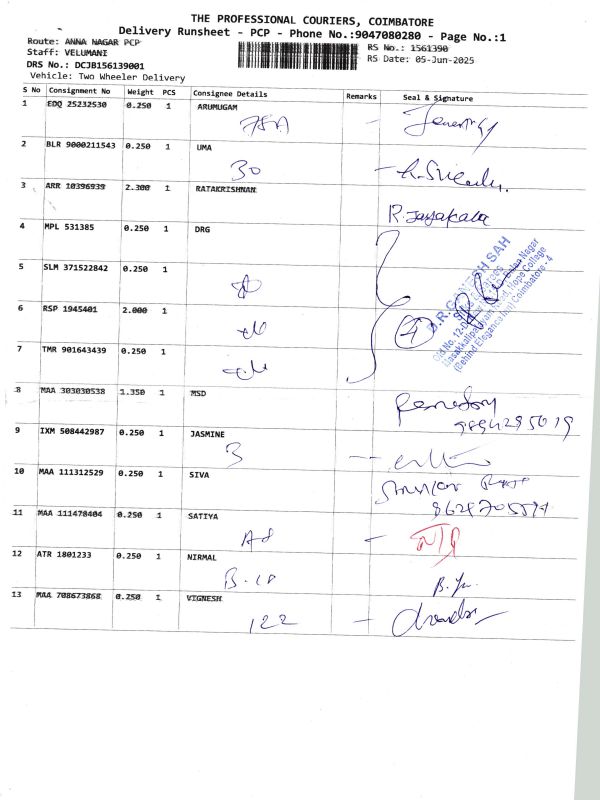 THE PROFESSIONAL COURIERS, COIMBATORE
Delivery Runsheet - PCP - Phone No.:9047080280 - Page No.:1
Route: ANNA NAGAR PCP
RS No.: 1561390
Staff: VELUMANI
RS Date: 05-Jun-2025
DRS No.: DCJB156139001
Vehicle: Two Wheeler Delivery
S No Consignment No Weight PCS Consignee Details Remarks Seal & Signature
1 EDQ 25232530 0.250 1 ARUMUGAM
78A
2 BLR 9000211543 0.250 1 UMA
30
3 ARR 10396939 2.300 1 RATAKRISHNAN
R. Jayakala
4 MPL 531385 0.250 1 DRG
5 SLM 371522842 0.250 1
6 RSP 1945401 2.000 1
4
7 TMR 901643439 0.250 1
D.R.GANESH SAH
(Behind Elegance Inn) Coimbatore - 4
8 MAA 303030538 1.350 1 MSD
9894295019
9 IXM 508442987 0.250 1 JASMINE
3
10 MAA 111312529 0.250 1 SIVA
11 MAA 111478404 0.250 1 SATIYA
12 ATR 1801233 0.250 1 NIRMAL
13 MAA 708673868 0.250 1 VIGNESH
122